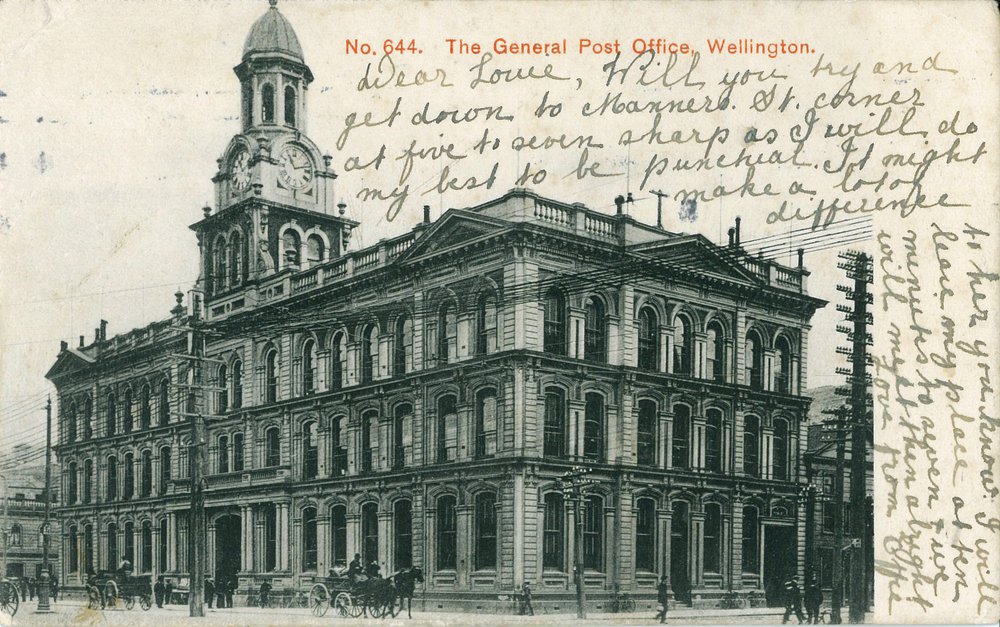 No. 644. The General Post Office, Wellington.
Dear Louie, Will you try and
get down to Manners. St. corner
at five to seven sharp as I will do
my best to be punctual. It might
make a lot of
difference
to her you know. I will
leave my place at ten
minutes to seven & we
will meet then alright
from Office